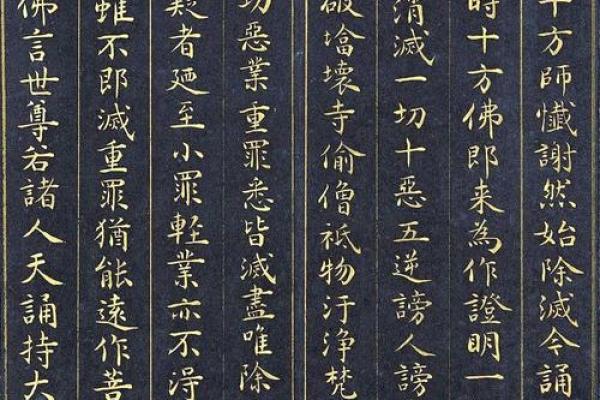 十方師懺謝然始除滅今誦
時十方佛即来為作證明一
消滅一切十惡五逆謗人謗
破塔壞寺偷僧祇物汙淨梵
切惡業重罪悉皆滅盡唯除
疑者廼至小罪軽業亦不淂
雖不即滅重罪猶能遠作菩
佛言世尊若諸人天誦持大